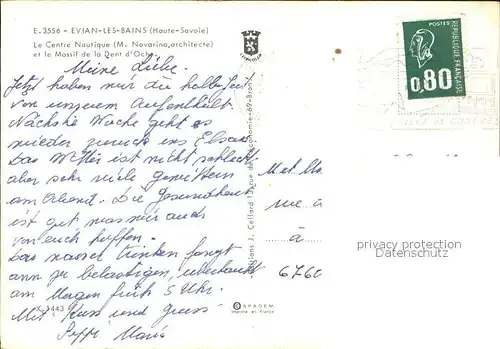 E. 3556 - EVIAN-LES-BAINS (Haute-Savoie)
Le Centre Nautique (M. Novarina, architecte)
et le Massif de la Dent d'Oche
Meine Liebe.
Jetzt haben wir die halbe Zeit
von unserem Aufenthalt.
Nächste Woche geht es
wieder zurück ins Elsass
Das Wetter ist nicht schlecht
aber sehr viele gewittern
am Abend. Die Gesundheit
ist gut was wir auch
von euch hoffen.
Das wasser trinken fangt
ann zu belastigen, uberhaupt
am Morgen früh 5 Uhr.
Mit Kuss und gruss
Seppi Maria
Editions J. Cellard
Bron
APADEM
Imprimé en France
M et Mme
rue
à
6760
POSTES
RÉPUBLIQUE FRANÇAISE
0,80
privacy protection
Datenschutz